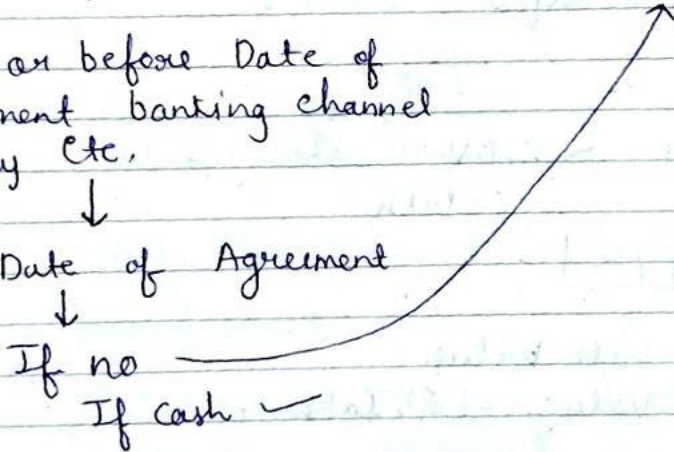 or before Date of
ment banking channel
y etc.
↓
Date of Agreement
↓
If no
If cash ✓